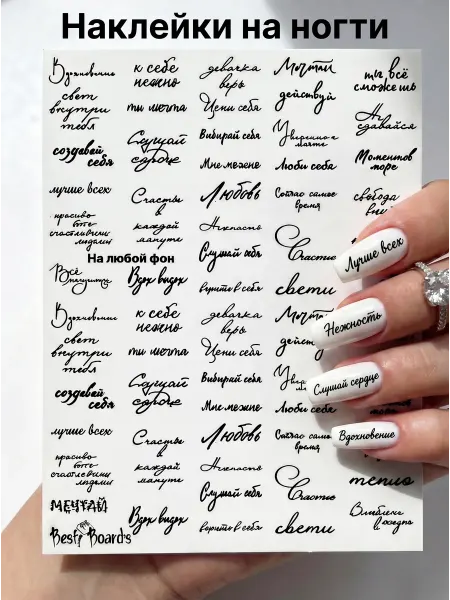 Наклейки на ногти
Вдохновение
свет
внутри
тебя
создавай
себя
лучше всех
красиво
быть
счастливыми
людьми
На любой фон
Всё
Вдохновение
свет
внутри
тебя
создавай
себя
лучше всех
красиво
быть
счастливыми
людьми
МЕЧТАЙ
Best Boards
к себе
нежно
ты мечта
Слушай
сердце
Счастье
в
каждой
минуте
Вдох выдох
к себе
нежно
ты мечта
Слушай
сердце
Счастье
в
каждой
минуте
Вдох выдох
девочка
верь
Цени себя
Выбирай себя
Мне можно
Любовь
Нежность
Слушай себя
верить в себя
девочка
верь
Цени себя
Выбирай себя
Мне можно
Любовь
Нежность
Слушай себя
верить в себя
Мечтай
действуй
Уверенно к
мечте
Люби себя
Сейчас самое
время
Счастье
свети
Мечтай
Люби себя
время
Счастье
свети
ты всё
сможешь
Не
сдавайся
Моментов
море
свобода
тепло
Лучше всех
Нежность
Слушай сердце
Вдохновение